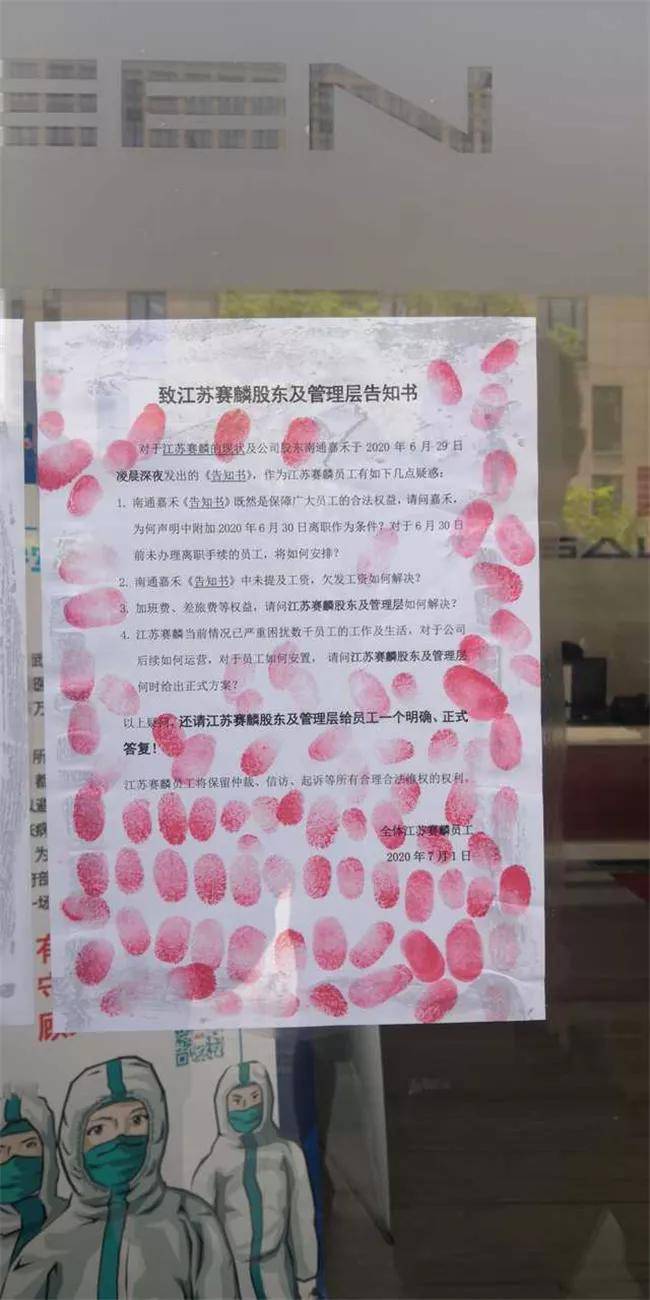 EEN
致江苏赛麟股东及管理层告知书
对于江苏赛麟的现状及公司股东南通嘉禾于 2020 年 6 月 29 日
凌晨深夜发出的《告知书》，作为江苏赛麟员工有如下几点疑惑：
1. 南通嘉禾《告知书》既然是保障广大员工的合法权益，请问嘉禾，
为何声明中附加 2020 年 6 月 30 日离职作为条件？对于 6 月 30 日
前未办理离职手续的员工，将如何安排？
2. 南通嘉禾《告知书》中未提及工资，欠发工资如何解决？
3. 加班费、差旅费等权益，请问江苏赛麟股东及管理层如何解决？
4. 江苏赛麟当前情况已严重困扰数千员工的工作及生活，对于公司
后续如何运营，对于员工如何安置， 请问江苏赛麟股东及管理层
何时给出正式方案？
以上疑问，还请江苏赛麟股东及管理层给员工一个明确、正式
答复！
江苏赛麟员工将保留仲裁、信访、起诉等所有合理合法维权的权利。
全体江苏赛麟员工
2020 年 7 月 1 日
武
医
万
所
都
以避
病
为
部
场
有
守
顾